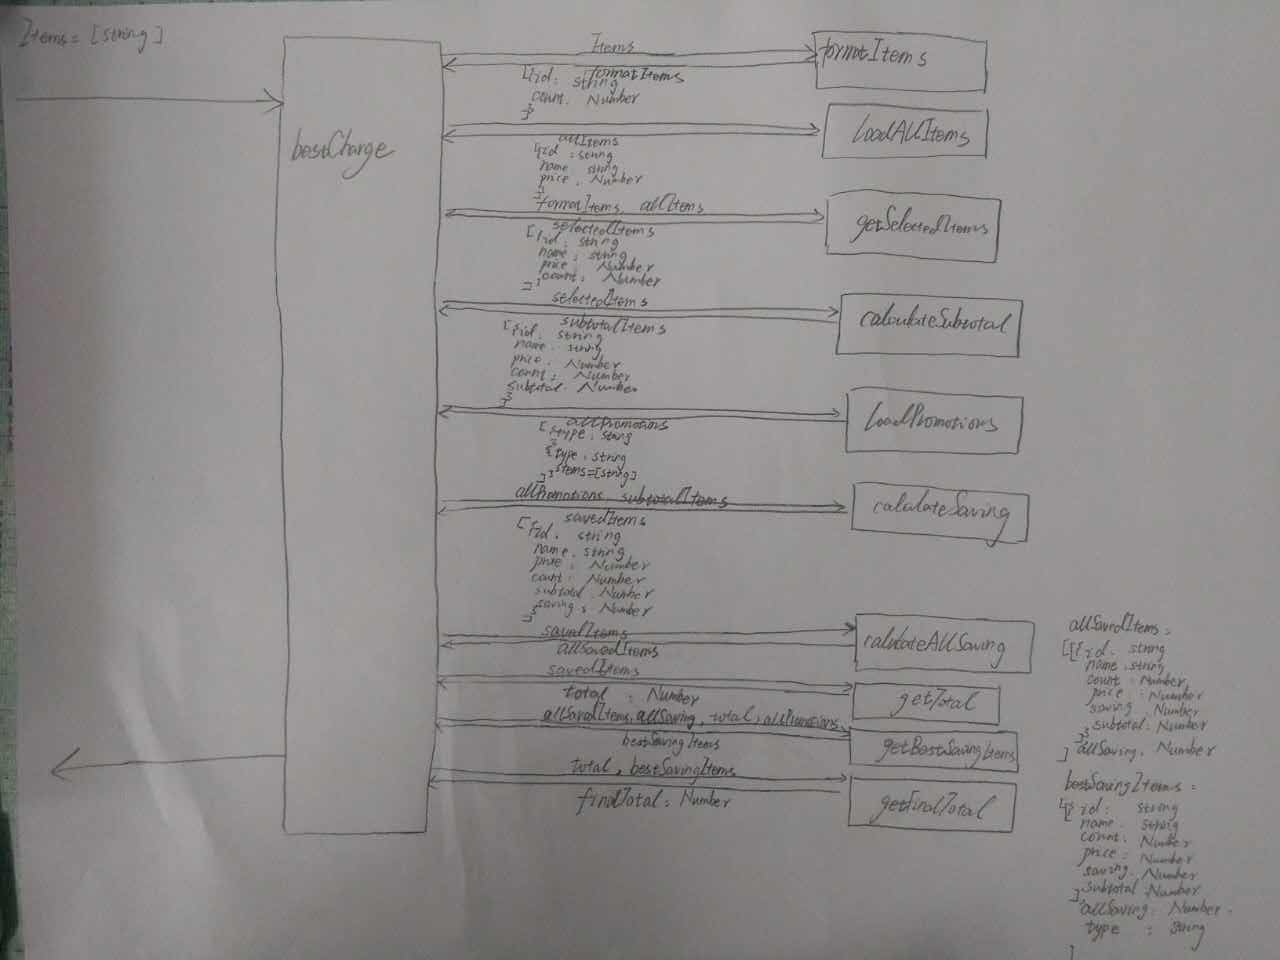 Items = [string]
bestCharge
Items
formatItems
formatItems
[{id: string
count: Number
}]
loadAllItems
allItems
[{id: string
name: string
price: Number
}]
formatItems, allItems
getSelectedItems
selectedItems
[{id: string
name: string
price: Number
count: Number
}]
selectedItems
calculateSubtotal
subtotalItems
[{id: string
name: string
price: Number
count: Number
subtotal: Number
}]
loadPromotions
allPromotions
[{type: string
}
{type: string
items=[string]
}]
allPromotions, subtotalItems
calculateSaving
savedItems
[{id: string
name: string
price: Number
count: Number
subtotal: Number
saving: Number
}]
savedItems
calculateAllSaving
allSavedItems
savedItems
getTotal
total : Number
allSavedItems, allSaving, total, allPromotions
getBestSavingItems
bestSavingItems
total, bestSavingItems
getFinalTotal
finalTotal: Number
allSavedItems =
[[{id: string
name: string
count: Number
price: Number
saving: Number
subtotal: Number
}
] allSaving: Number
bestSavingItems =
[{id: string
name: string
count: Number
price: Number
saving: Number
subtotal: Number
}
allSaving: Number
type : string
]